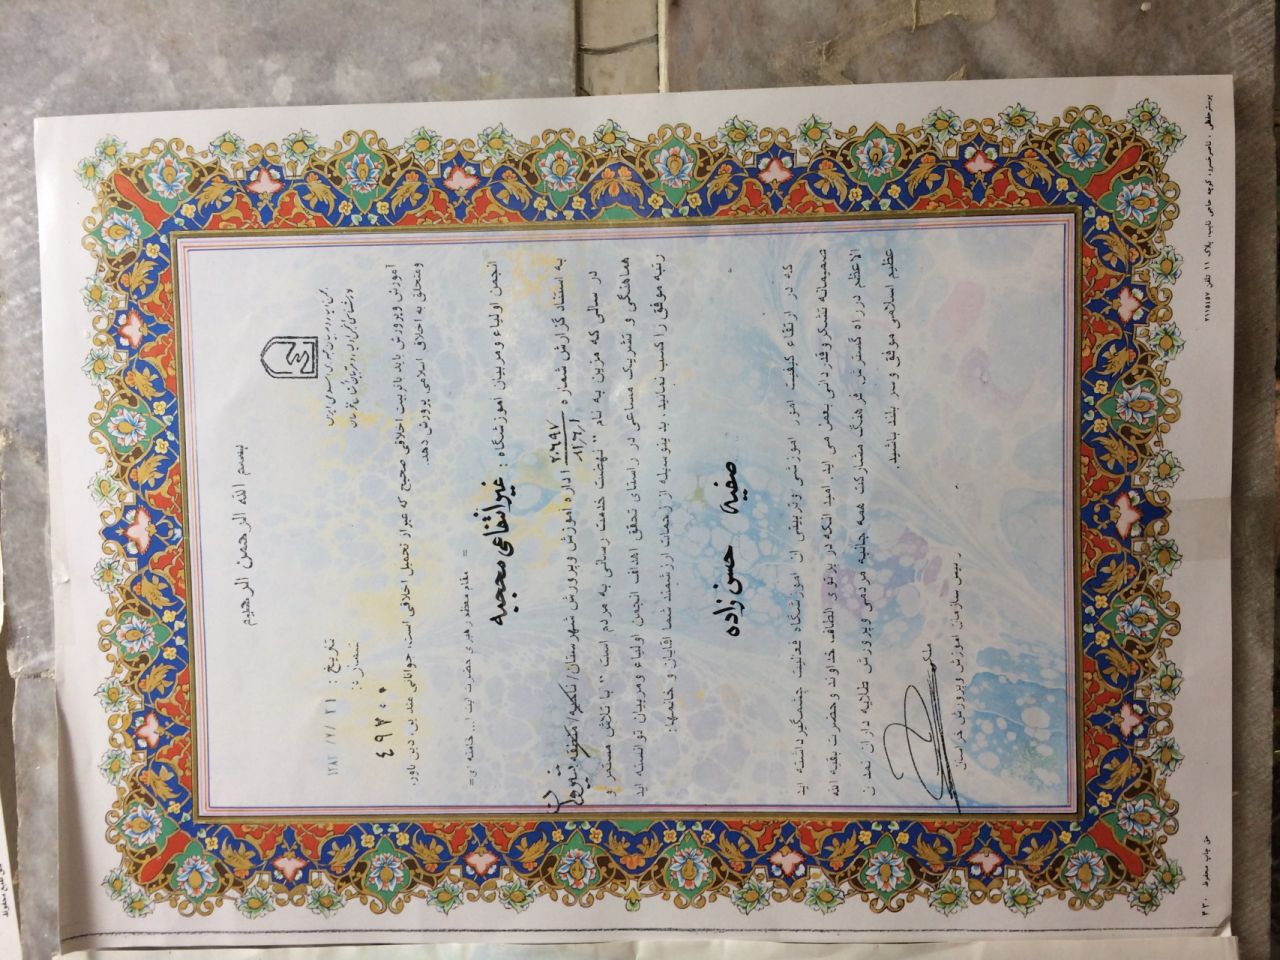 بسم الله الرحمن الرحیم
تاریخ : ۱۳۸۲/۷/۲۱
شماره : ۴۹۷۰۰
آموزش وپرورش باید با تربیت اخلاقی صحیح که غیر از تحمیل اخلاقی است، جوانانی متدین، دین باور،
ومتخلق به اخلاق اسلامی پرورش دهد.
= مقام معظم رهبری حضرت آیت ا... خامنه ای =
انجمن اولیاء ومربیان آموزشگاه : غیرانتفاعی محجبه
به استناد گزارش شماره ۲۰۶۹۷ اداره آموزش وپرورش شهرستان/ناحیه/منطقه
در سالی که مزین به نام " نهضت خدمت رسانی به مردم است " با تلاش مستمر و
هماهنگی و تشریک مساعی در راستای تحقق اهداف انجمن اولیاء ومربیان توانسته اید
رتبه موفق را کسب نمائید. بدینوسیله از زحمات ارزشمند شما آقایان و خانمها:
صفیه حسن زاده
که در ارتقاء کیفیت امور آموزشی وتربیتی آن آموزشگاه فعالیت چشمگیر داشته اید
صمیمانه تشکر وقدردانی بعمل می آید. امید آنکه در پرتو ی الطاف خداوند وحضرت بقیه الله
الاعظم در راه گسترش فرهنگ مشارکت همه جانبه مردمی وپرورش طلایه داران تمدن
عظیم اسلامی موفق و سر بلند باشید.
رییس سازمان آموزش وپرورش خراسان
ملکی
پوستر حافظی . ناصرخسرو، کوچه حاجی نایب، پلاک ۱۱ تلفن
۳۰ ۳ حق چاپ محفوظ